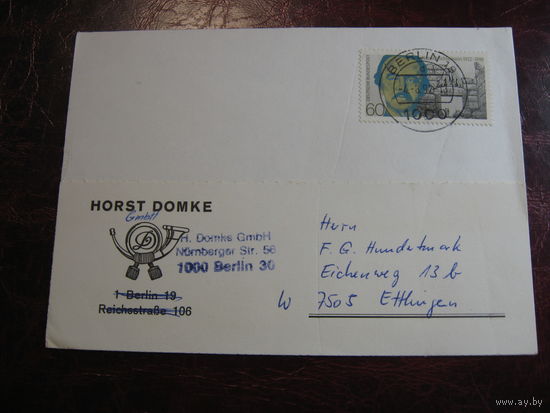 BERLIN
1000
60
HORST DOMKE
GmbH
H. Domke GmbH
Nürnberger Str. 56
1000 Berlin 30
1 Berlin 19
Reichsstraße 106
Herr
F. G. Hundertmark
Eichenweg 13 b
W 7505 Ettlingen
www.ay.by